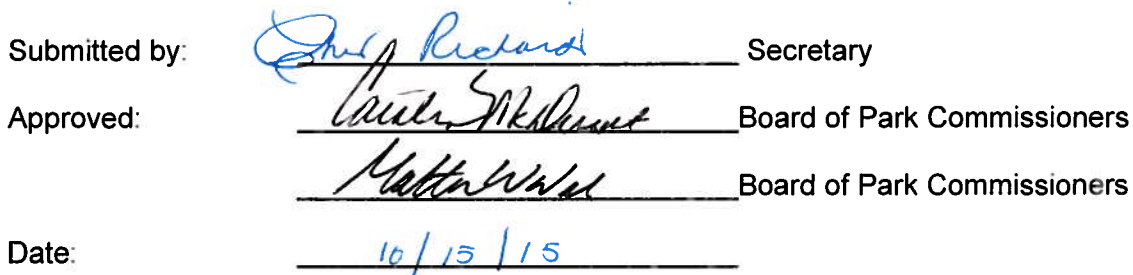 Submitted by: Richard Secretary
Approved: Board of Park Commissioners
Board of Park Commissioners
Date: 10/15/15